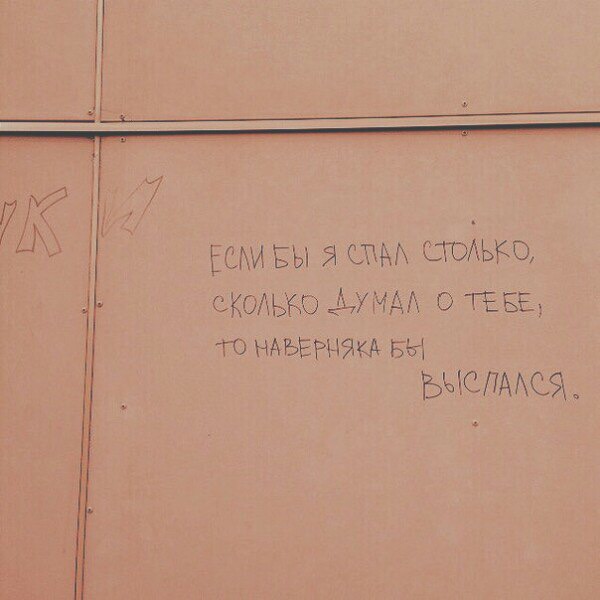 УКИ
ЕСЛИ БЫ Я СПАЛ СТОЛЬКО,
СКОЛЬКО ДУМАЛ О ТЕБЕ,
ТО НАВЕРНЯКА БЫ
ВЫСПАЛСЯ.